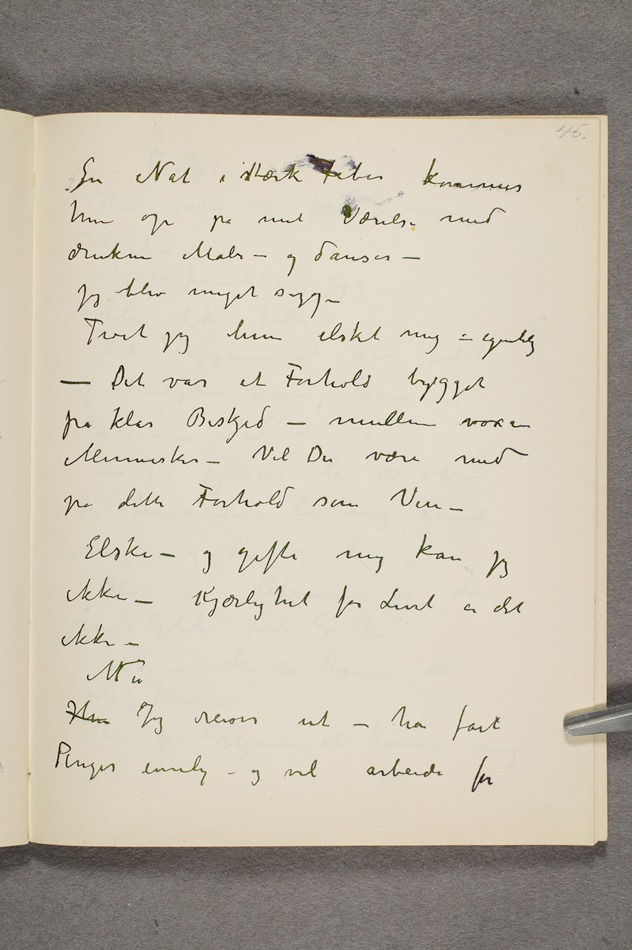 45.
En Nat i stærk Feber kommer
hun op på mit Værelse med
drukne Maler – og danser –
Jeg blev meget syg –
Tror jeg hun elsket mig – egentlig
– Det var et Forhold bygget
på klar Beskjed – mellem voxne
Mennesker – Vil Du være med
på dette Forhold som Ven –
Elske – og gifte mig kan jeg
ikke – Kjærlighet for Livet er det
ikke –
Nu
Hun Jeg reiser ut – har fåt
Penger – og vil arbeide for